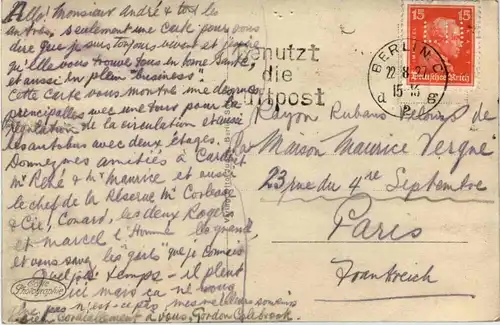 Allo! Monsieur André & tout les
autres, seulement une carte pour vous
dire que je suis toujours vivant et j'espère
qu'elle vous trouve tous en bonne santé,
et aussi en plein "business".
Cette carte vous montre une des rues
principales avec une tour pour la
régulation de la circulation et aussi
les autobus avec deux étages.
Donnez mes amitiées à
Mr René & Mr Maurice et aussi
le chef de la Réserve Mr
& Cie, Conard, les deux Roger
et Marcel l'Homme les grands
et vous savez les "gars" que je connais
Quel Temps - il pleut
ici mais ça ne vous
pas n'est-ce pas, mes meilleurs
cordialement à vous, Gordon Calabrook
Benutzt
die
Luftpost
BERLIN C
22.8.27
15-16
d 2 g
15 15
Deutsches Reich
Rayon Rubans Velours de
la Maison Maurice Vergne
23 rue du 4re Septembre
Paris
Frankreich
Echte
Photographie